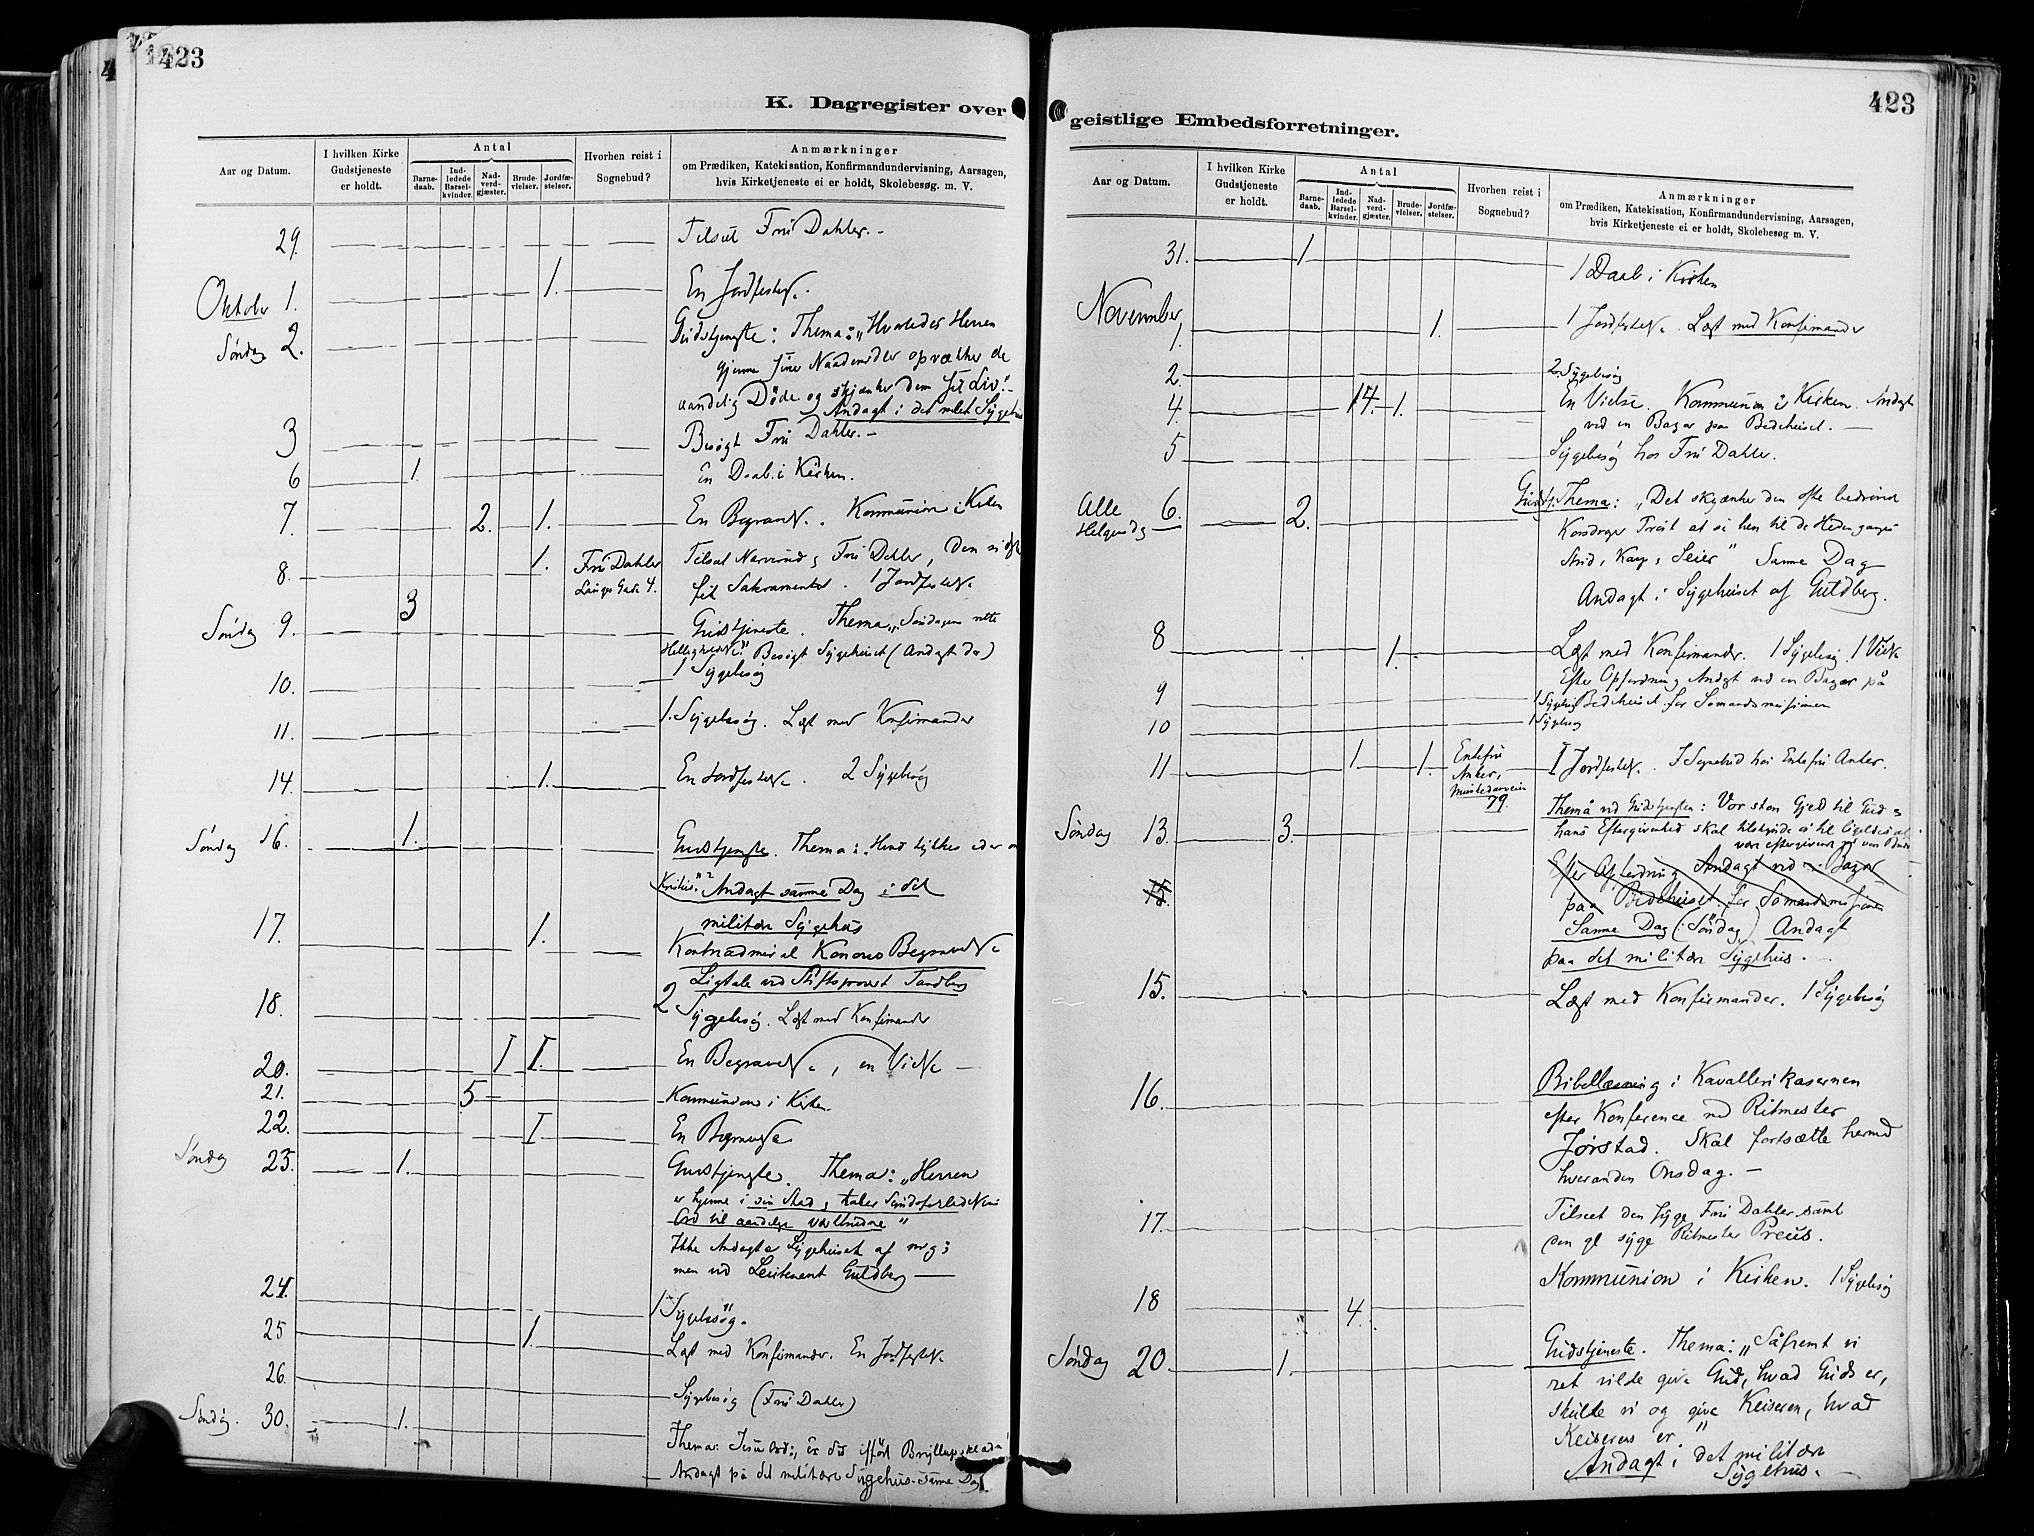 423
K. Dagregister over
Aar og Datum.
I hvilken Kirke
Gudstjeneste
er holdt.
Antal
Barne-
daab.
Ind-
ledede
Barsel-
kvinder.
Nad-
verd-
gjæster.
Brude-
vielser.
Jordfæ-
stelser.
Hvorhen reist i
Sognebud?
Anmærkninger
om Prædiken, Katekisation, Konfirmandundervisning, Aarsagen,
hvis Kirketjeneste ei er holdt, Skolebesøg. m. V.
29. Tilseet Fru Dahler.
Oktober 1. 1. En Jordfestelse.
Søndag 2. Gudstjeneste: Thema: „Hvorledes Herren
gjennem sine Naademidler opvækker de
aandelig Døde og skjænker dem sit Liv"
Andagt i det milit Sygehus
3 Besøgt Fru Dahler.
6 1. En Daab i Kirken.
7. 2. 1. En Begravelse. Kommunion i Kirken
8. 1. Fru Dahler
Langes Gade 4. Tilseet Fru Dahler,
Sakramentet. 1 Jordfestelse
Søndag 9. 3 Gudstjeneste. Thema „Søndagens rette
Helligholdelse." Besøgt Sygehuset (Andagt der)
10. 1 Sygebesøg
11. 1. Sygebesøg. Læst med Konfirmander
14. 1. En Jordfestelse. 2 Sygebesøg
Søndag 16. 1. Gudstjeneste. Thema: „Hvad tykkes eder om
Kristus"? Andagt samme Dag i det
militære Sygehus
17. 1. Kontreadmiral Konows Begravelse
Ligtale ved Stiftsprovst Tandberg
18. 2 Sygebesøg. Læst med Konfirmander
20. 1 1. En Begravelse, en Vielse
21. 5 Kommunion i Kirken.
22. 1 En Begravelse
Søndag 23. 1. Gudstjeneste. Thema: „Herren
er hjemme i sin Stad, taler Syndsforladelsens
Ord til aandelige Værkbrudne"
Ikke Andagt i Sygehuset af mig;
men ved Leutenant Guldberg
24. 1 Sygebesøg.
25 1. Læst med Konfirmander. En Jordfestelse
26. Sygebesøg (Fru Dahler)
Søndag. 30. 1. Thema: Jesu Ord: er du iført Bryllupsklædn
Andagt på det militære Sygehus samme Dag.
423
geistlige Embedsforretninger.
Aar og Datum.
I hvilken Kirke
Gudstjeneste
er holdt.
Antal
Barne-
daab.
Ind-
ledede
Barsel-
kvinder.
Nad-
verd-
gjæster.
Brude-
vielser.
Jordfæ-
stelser.
Hvorhen reist i
Sognebud?
Anmærkninger
om Prædiken, Katekisation, Konfirmandundervisning, Aarsagen,
hvis Kirketjeneste ei er holdt, Skolebesøg m. V.
31. 1 1 Daab i Kirken
November 1. 1. 1 Jordfestelse. Læst med Konfirmander
2. 2 Sygebesøg
4. 14. 1. En Vielse. Kommunion i Kirken. Andagt
ved en Bazar paa Bedehuset.
5 Sygebesøg hos Fru Dahler.
Alle
Helgensdag 6. 2. Gudstj. Thema: „Det skjænker den ofte bedrøvede
Korsdrager Trøst at se hen til de Hedengangnes
Strid, Kamp, Seier" Samme Dag
Andagt i Sygehuset af Guldberg.
8 1. Læst med Konfirmander. 1 Sygebesøg. 1 Vielse
Efter Opfordring Andagt ved en Bazar på
9 1 Sygebesøg Bedehuset for Sømandsmissionen
10 1 Sygebesøg
11 1. 1. Enkefru
Anker,
79. 1 Jordfestelse. 1 Sognebud hos Enkefru Anker.
Søndag 13. 3. Thema ved Gudstjenesten: Vor store Gjæld til Gud og
hans Eftergivenhed skal tilskynde os til ligeledes at
være eftergivende mod vore Brødre
15. Efter Opfordring Andagt ved Bazar
paa Bedehuset for Sømandsmissionen
Samme Dag (Søndag) Andagt
paa det militære Sygehus.
15. Læst med Konfirmander. 1 Sygebesøg
16. Bibellæsning i Kavallerikasernen
efter Konference med Ritmester
Jørstad. Skal fortsætte hermed
hveranden Onsdag.
17. Tilseet den syge Fru Dahler samt
den gl syge Ritmester Preus.
Kommunion i Kirken. 1 Sygebesøg
18 4.
Søndag 20. 1. Gudstjeneste. Thema: „Såfremt vi
ret vilde give Gud, hvad Guds er,
skulde vi og give Keiseren, hvad
Keiserens er"
Andagt i det militære
Sygehus.